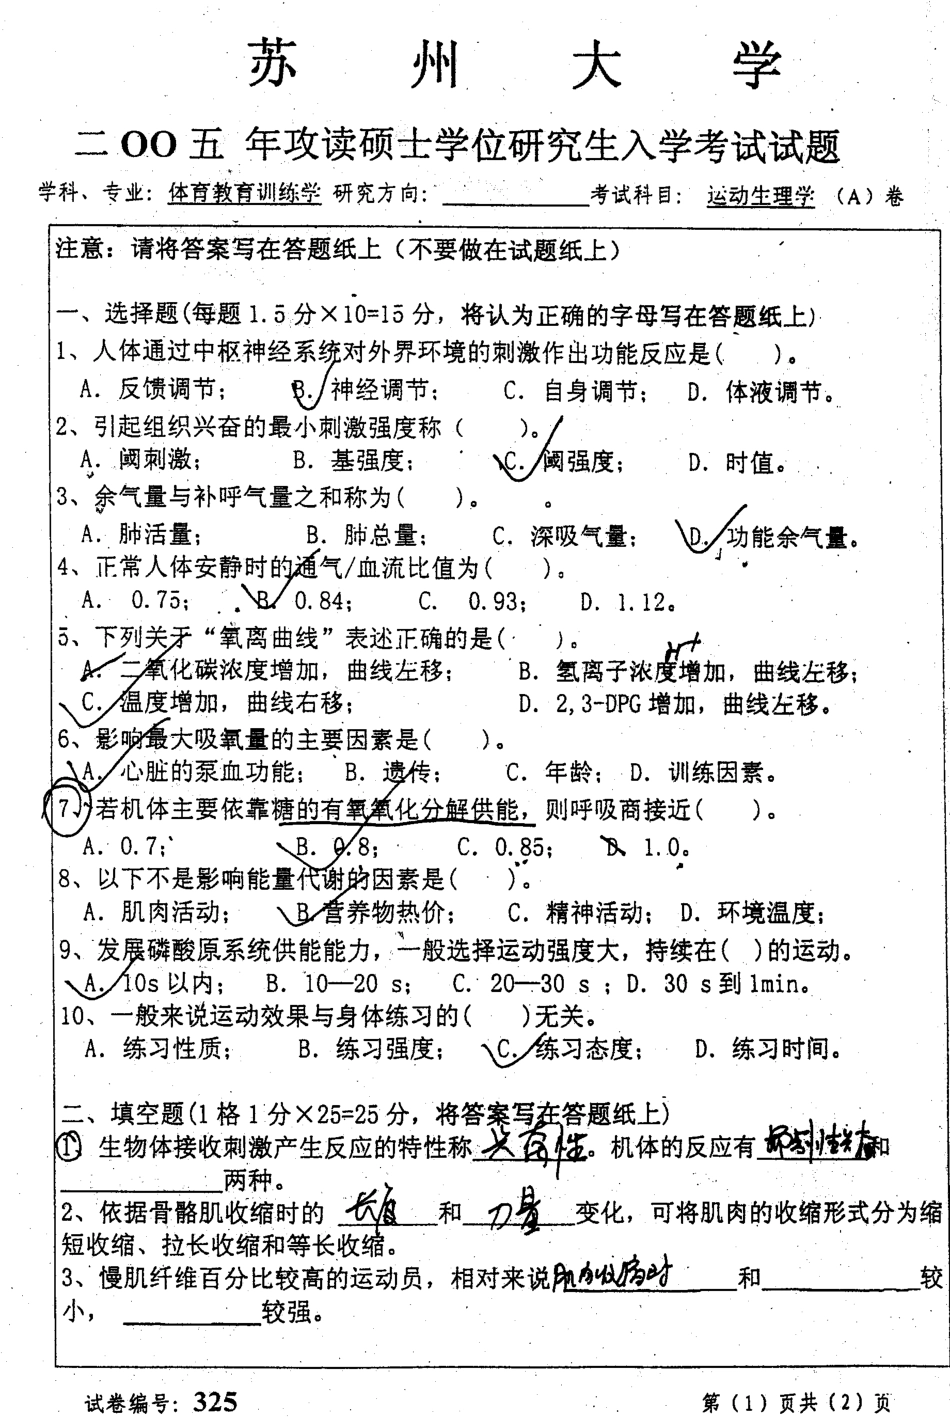 苏州大学
二OO五 年攻读硕士学位研究生入学考试试题
学科、专业：体育教育训练学 研究方向：____________ 考试科目：运动生理学 （A）卷
注意：请将答案写在答题纸上（不要做在试题纸上）
一、选择题(每题1.5分×10=15分，将认为正确的字母写在答题纸上)
1、人体通过中枢神经系统对外界环境的刺激作出功能反应是(    )。
A．反馈调节； B．神经调节； C．自身调节； D．体液调节。
2、引起组织兴奋的最小刺激强度称（    ）。
A．阈刺激； B．基强度； C．阈强度； D．时值。
3、余气量与补呼气量之和称为(    )。
A．肺活量； B．肺总量； C．深吸气量； D．功能余气量。
4、正常人体安静时的通气/血流比值为(    )。
A． 0.75； B．0.84； C． 0.93； D．1.12。
5、下列关于“氧离曲线”表述正确的是(    )。
H+
A．二氧化碳浓度增加，曲线左移； B．氢离子浓度增加，曲线左移；
C．温度增加，曲线右移； D．2,3-DPG增加，曲线左移。
6、影响最大吸氧量的主要因素是(    )。
A．心脏的泵血功能； B．遗传； C．年龄； D．训练因素。
7、若机体主要依靠糖的有氧氧化分解供能，则呼吸商接近(    )。
A．0.7； B．0.8； C．0.85； D．1.0。
8、以下不是影响能量代谢的因素是(    )。
A．肌肉活动； B．营养物热价； C．精神活动； D．环境温度；
9、发展磷酸原系统供能能力，一般选择运动强度大，持续在(  )的运动。
A．10s以内； B．10—20 s； C．20—30 s ；D．30 s到1min。
10、一般来说运动效果与身体练习的(    )无关。
A．练习性质； B．练习强度； C．练习态度； D．练习时间。
二、填空题(1格1分×25=25分，将答案写在答题纸上)
1、生物体接收刺激产生反应的特性称 兴奋性。机体的反应有____________和
____________两种。
2、依据骨骼肌收缩时的 长度 和 力量 变化，可将肌肉的收缩形式分为缩
短收缩、拉长收缩和等长收缩。
3、慢肌纤维百分比较高的运动员，相对来说 肌肉收缩时 和____________较
小，____________较强。
试卷编号：325 第（1）页共（2）页